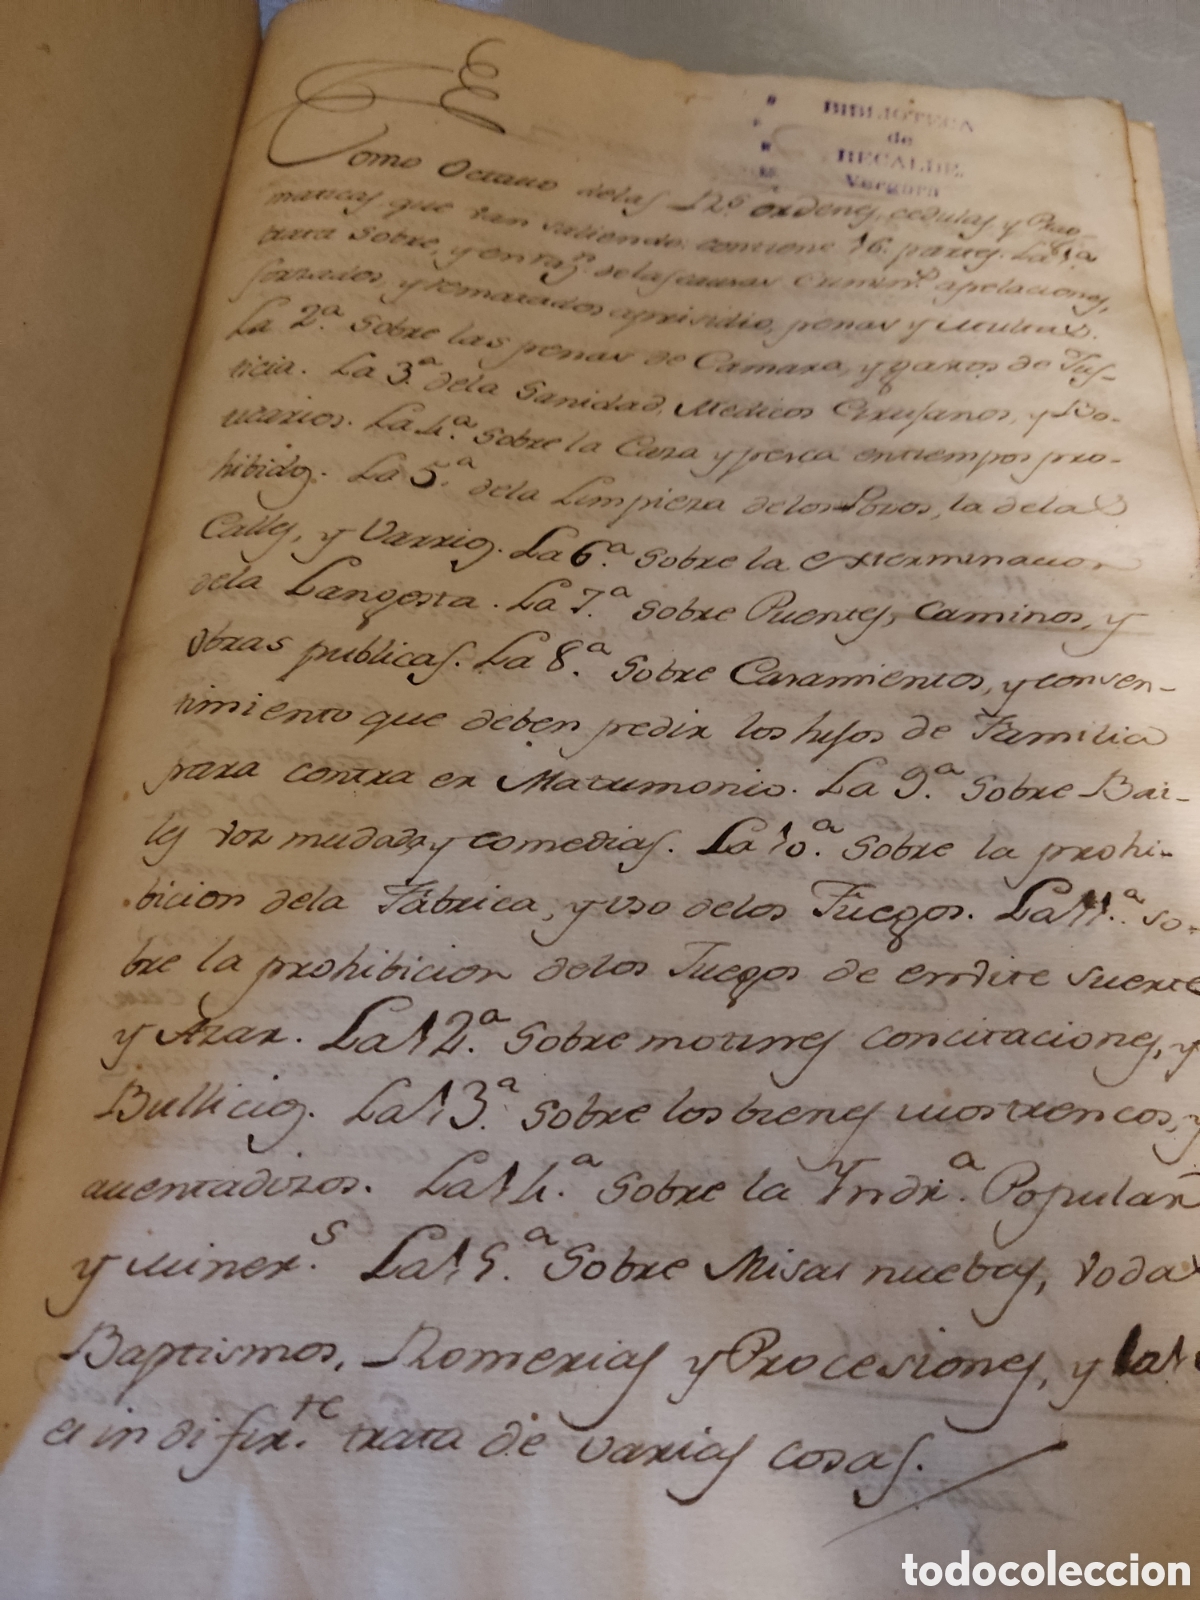 BIBLIOTECA
de
RECALDE.
Vergara
Tomo Octavo delas Rs. ordenes, cedulas, y Prac-
maticas que van saliendo: contiene 16. partes. La 1.a
trata sobre, y en razn. delas causas Crimins. apelaciones,
forzados, y rematados apresidio, penas y multas.
La 2.a sobre las penas de Camara, y gastos de Jus-
ticia. La 3.a dela Sanidad, Medicos Cirujanos, y Bo-
ticarios. La 4.a sobre la Caza y pesca entiempos pro-
hibidos. La 5.a dela Limpieza delos Pozos, la delas
Calles, y Varrios. La 6.a sobre la exterminacion
dela Langosta. La 7.a sobre Puentes, Caminos, y
obras publicas. La 8.a sobre Casamientos, y consen-
timiento que deben pedir los hijos de Familia
para contraer Matrimonio. La 9.a sobre Bai-
les voz mudada, y comedias. La 10.a sobre la prohi-
bicion dela Fabrica, y uso delos Fuegos. La 11.a so-
bre la prohibicion delos Juegos de embite suerte
y Azar. La 12.a sobre motines concitaciones, y
Bullicios. La 13.a sobre los bienes mostrencos, y
abentadizos. La 14.a sobre la Yndr.a Popular
y miner.s La 15.a sobre Misas nuebas, vodas
Baptismos, Romerias y Procesiones, y la 1
a indifer.te trata de varias cosas.
todocoleccion